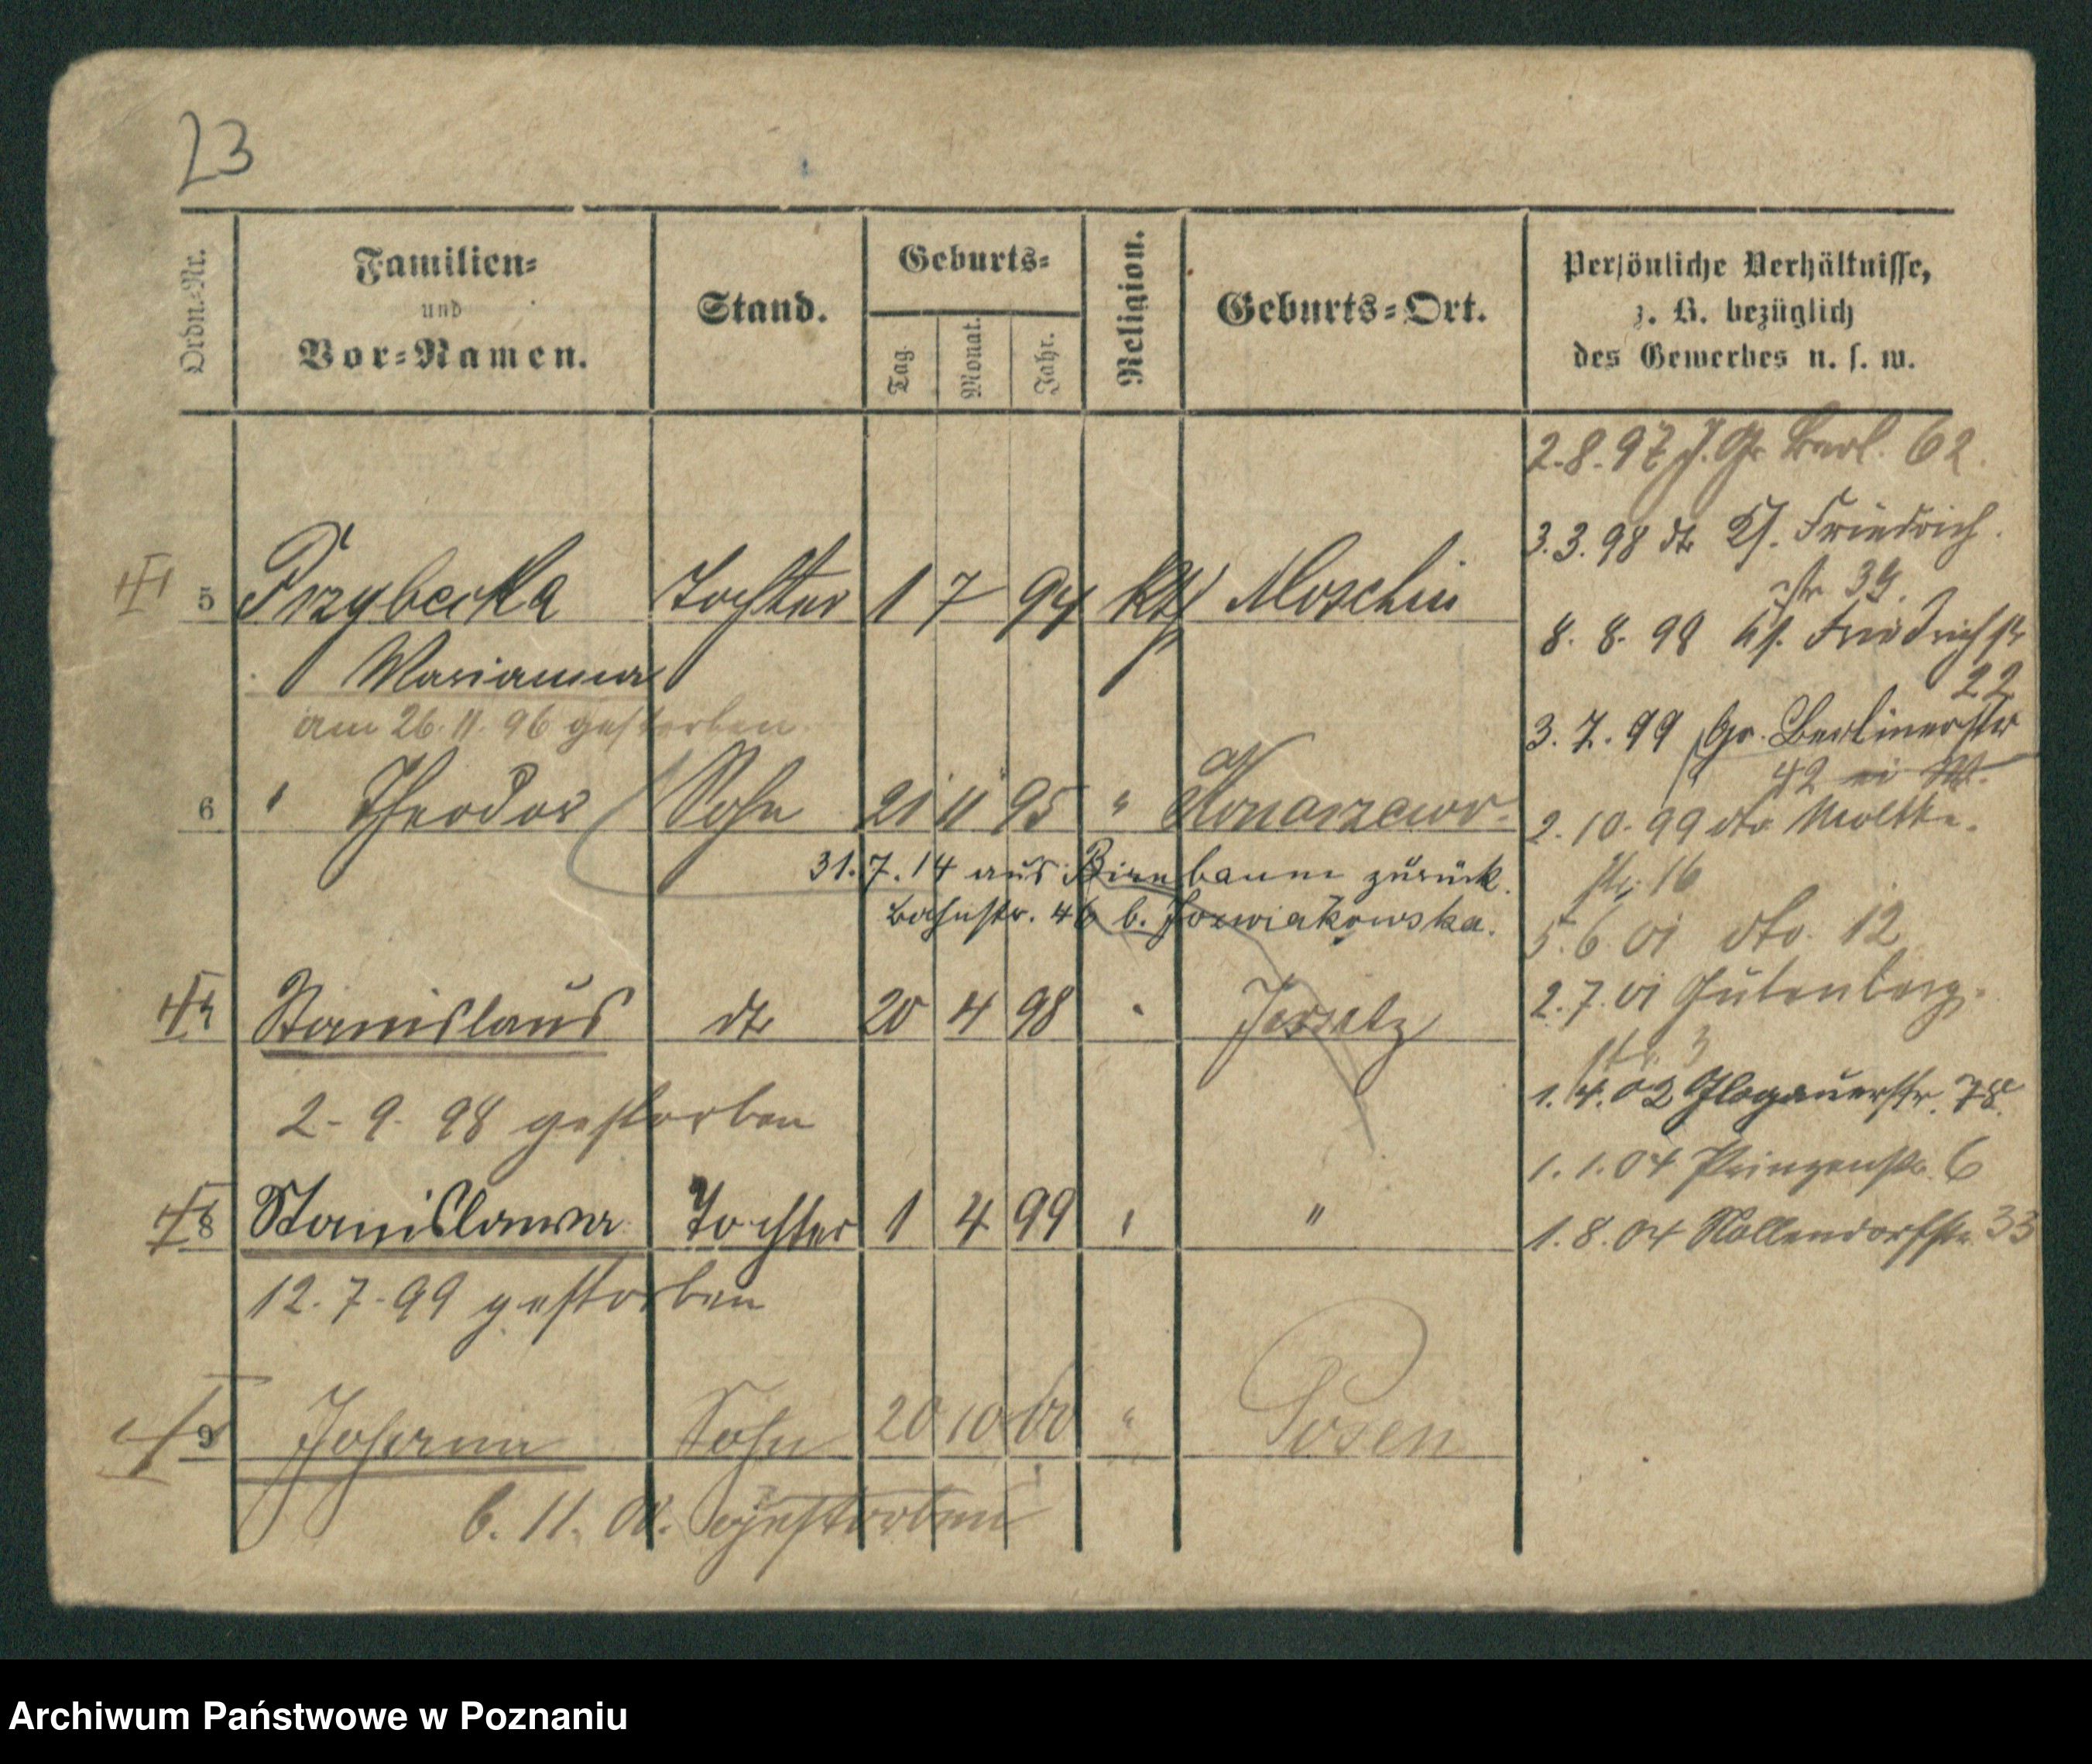 23
Ordn.-Nr.
Familien-
und
Vor-Namen.
Stand.
Geburts-
Tag.
Monat.
Jahr.
Religion.
Geburts-Ort.
Persönliche Verhältnisse,
z. B. bezüglich
des Gewerbes u. s. w.
2.8.97 J. Gr. Berl. 62
3.3.98 dto Kl. Friedrich
str 39.
5 Przybecka Tochter 1 7 94 kth Moschin
8. 8. 98 Kl. Friedrichstr
22
Marianna
am 26.11.96 gestorben
3.7.99 Gr. Berlinerstr
42
6 " Theodor Sohn 21 11 95 " Konarzewo
2.10.99 dto Moltke-
str 16
31.7.14 aus Birnbaum zurück.
Bahnstr. 46 b. Jozwiakowska.
5.6.01 dto. 12
2.7.01 Gutenberg-
str. 3
7 Stanislaus dto 20 4 98 " Jersitz
1.4.02 Glogauerstr. 78
2-9-98 gestorben
1.1.04 Prinzenstr. 6
8 Stanislawa Tochter 1 4 99 " "
1.8.04 Nollendorfstr. 33
12.7.99 gestorben
9 Johann Sohn 20 10 00 " Posen
6.11.00. gestorben
Archiwum Państwowe w Poznaniu